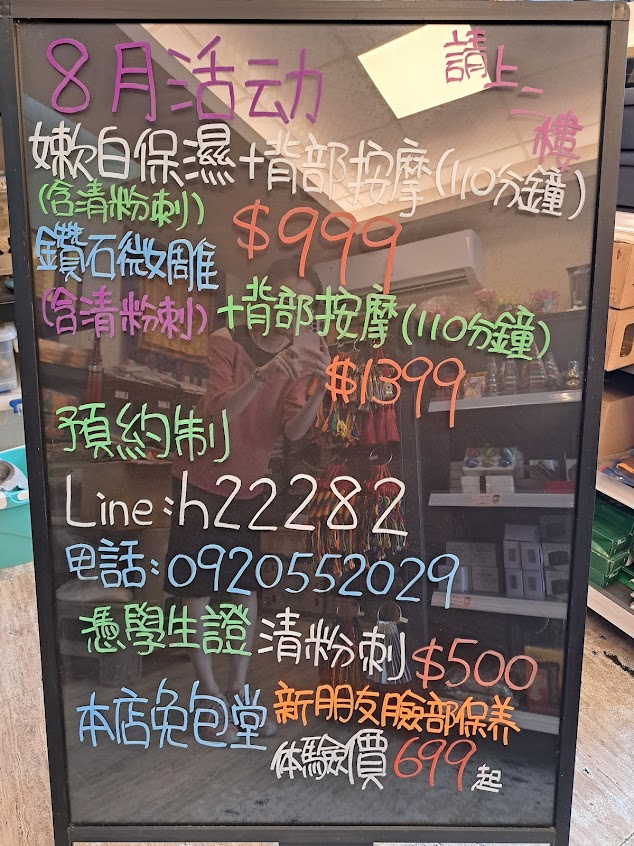 8月活动
請上二樓
嫰白保濕+背部按摩(110分鐘)
(含清粉刺)
$999
鑽石微雕
(含清粉刺)+背部按摩(110分鐘)
$1399
預約制
Line:h22282
电話:0920552029
憑學生證清粉刺$500
本店免包堂 新朋友臉部保养
体驗價699起